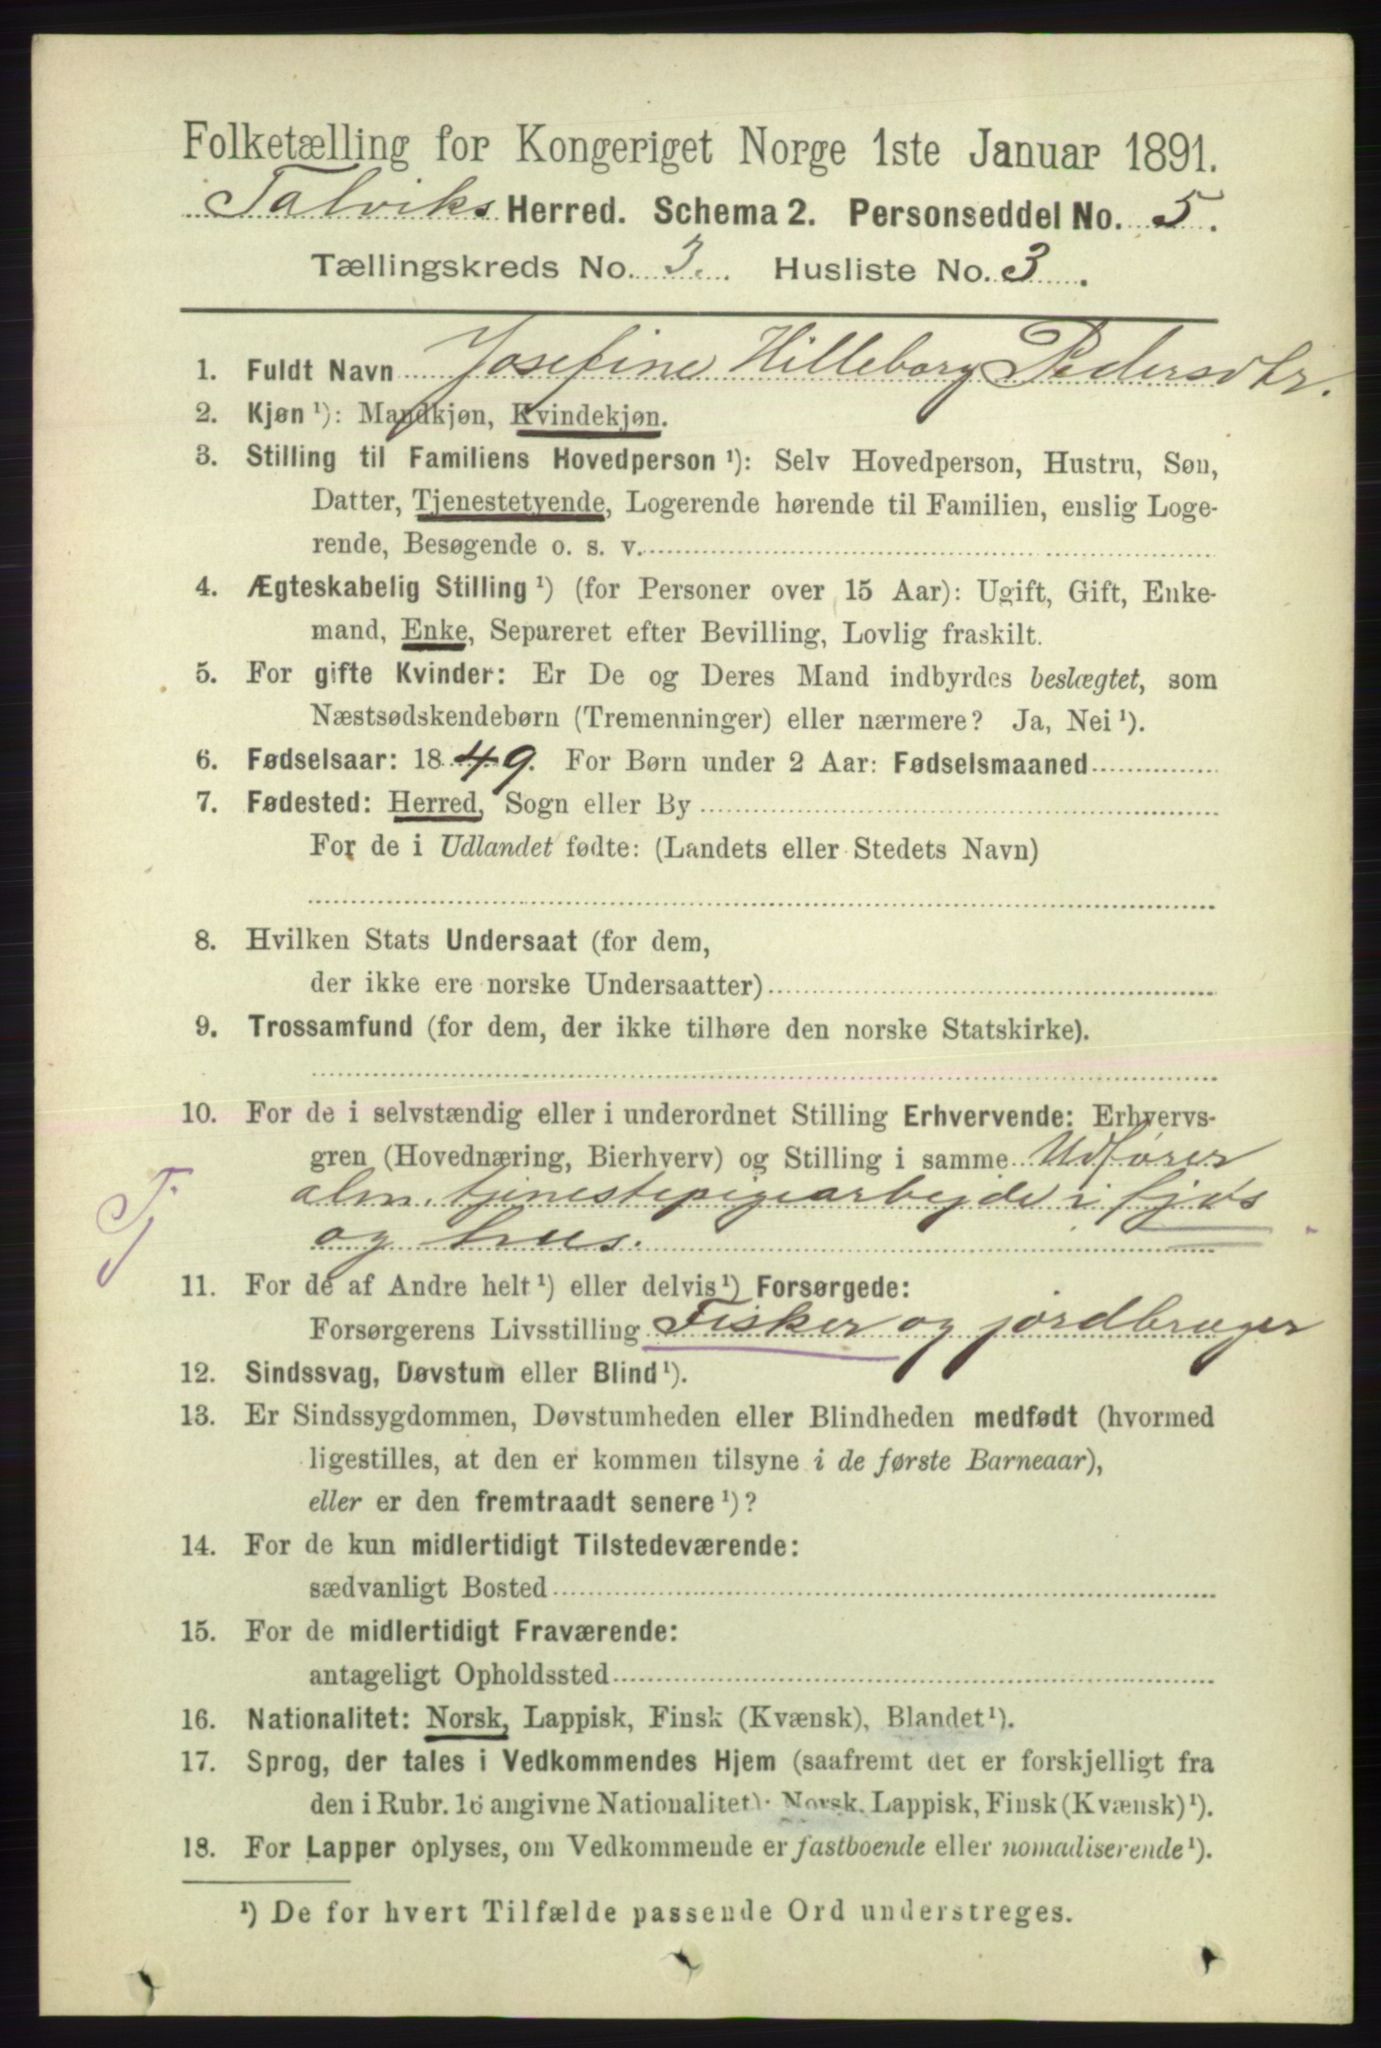 Folketælling for Kongeriget Norge 1ste Januar 1891.
Talviks Herred. Schema 2. Personseddel No. 5.
Tællingskreds No. 3. Husliste No. 3.
1. Fuldt Navn Josefine Hilleborg Pedersdtr.
2. Kjøn ¹): Mandkjøn, Kvindekjøn.
3. Stilling til Familiens Hovedperson ¹): Selv Hovedperson, Hustru, Søn,
Datter, Tjenestetyende, Logerende hørende til Familien, enslig Loge-
rende, Besøgende o. s. v.
4. Ægteskabelig Stilling ¹) (for Personer over 15 Aar): Ugift, Gift, Enke-
mand, Enke, Separeret efter Bevilling, Lovlig fraskilt.
5. For gifte Kvinder: Er De og Deres Mand indbyrdes beslægtet, som
Næstsødskendebørn (Tremenninger) eller nærmere? Ja, Nei ¹).
6. Fødselsaar: 1849. For Børn under 2 Aar: Fødselsmaaned
7. Fødested: Herred, Sogn eller By
For de i Udlandet fødte: (Landets eller Stedets Navn)
8. Hvilken Stats Undersaat (for dem,
der ikke ere norske Undersaatter)
9. Trossamfund (for dem, der ikke tilhøre den norske Statskirke).
10. For de i selvstændig eller i underordnet Stilling Erhvervende: Erhvervs-
gren (Hovednæring, Bierhverv) og Stilling i samme Udfører
Tj
alm. tjenestepigearbejde i fjøs
og hus.
11. For de af Andre helt ¹) eller delvis ¹) Forsørgede:
Forsørgerens Livsstilling Fisker og jordbruger
12. Sindssvag, Døvstum eller Blind ¹).
13. Er Sindssygdommen, Døvstumheden eller Blindheden medfødt (hvormed
ligestilles, at den er kommen tilsyne i de første Barneaar),
eller er den fremtraadt senere ¹)?
14. For de kun midlertidigt Tilstedeværende:
sædvanligt Bosted
15. For de midlertidigt Fraværende:
antageligt Opholdssted
16. Nationalitet: Norsk, Lappisk, Finsk (Kvænsk), Blandet ¹).
17. Sprog, der tales i Vedkommendes Hjem (saafremt det er forskjelligt fra
den i Rubr. 16 angivne Nationalitet): Norsk, Lappisk, Finsk (Kvænsk) ¹).
18. For Lapper oplyses, om Vedkommende er fastboende eller nomadiserende ¹).
¹) De for hvert Tilfælde passende Ord understreges.